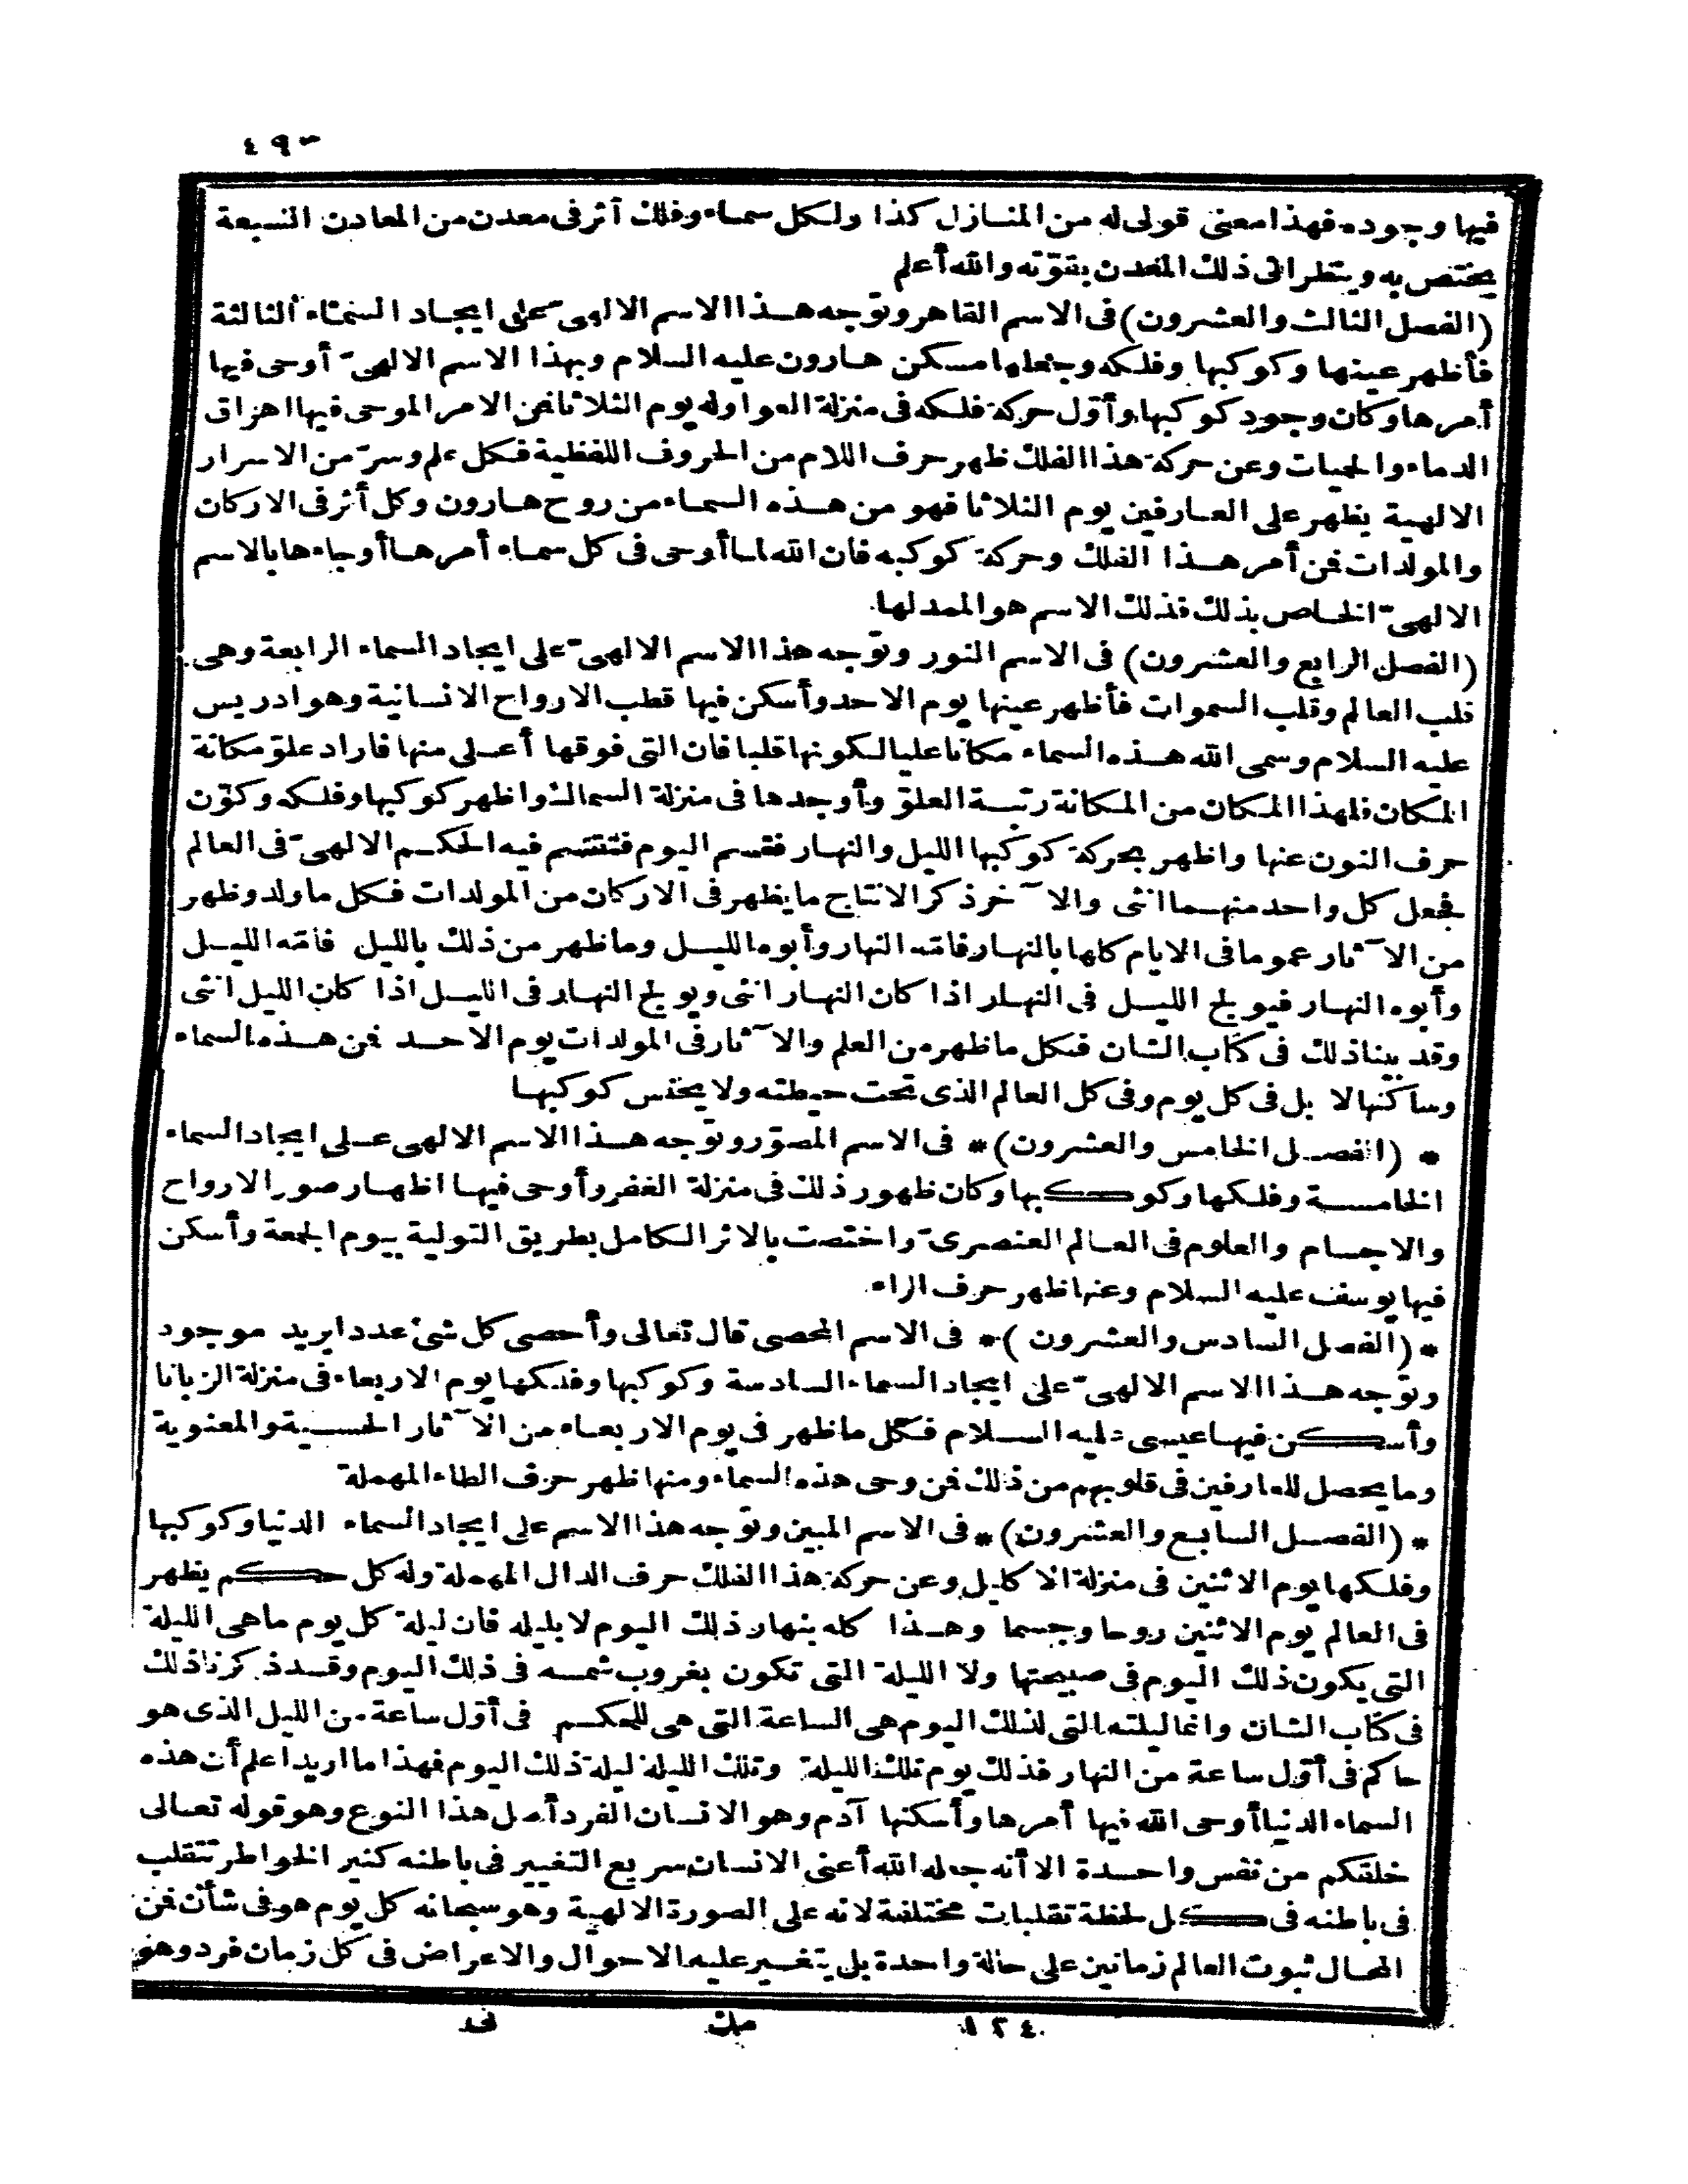 ٤٩٣
فيها وجوده فهذا معنى قولى له من المنازل كذا ولكل سماء وفلك أثر فى معدن من المعادن السبعة
يختص به وينظر الى ذلك المعدن بقوّته والله أعلم
(الفصل الثالث والعشرون) فى الاسم القاهر وتوّجه هذا الاسم الالهىّ على ايجاد السماء الثالثة
فأظهر عينها وكوكبها وفلكه وجعلها مسكن هارون عليه السلام وبهذا الاسم الالهىّ أوحى فيها
أمرها وكان وجود كوكبها وأوّل حركة فلكه فى منزلة العوا وله يوم الثلاثا فمن الامر الموحى فيها اهراق
الدماء والحميات وعن حركة هذا الفلك ظهر حرف اللام من الحروف اللفظية فكل علم وسرّ من الاسرار
الالهية يظهر على العارفين يوم الثلاثا فهو من هذه السماء من روح هارون وكل أثر فى الاركان
والمولدات فمن أمر هذا الفلك وحركة كوكبه فان الله لما أوحى فى كل سماء أمرها أوجاءها بالاسم
الالهىّ الخاص بذلك فذلك الاسم هو الممد لها
(الفصل الرابع والعشرون) فى الاسم النور وتوّجه هذا الاسم الالهىّ على ايجاد السماء الرابعة وهى
قلب العالم وقلب السموات فأظهر عينها يوم الاحد وأسكن فيها قطب الارواح الانسانية وهو ادريس
عليه السلام وسمى الله هذه السماء مكانا عليا لكونها قلبا فان التى فوقها أعلى منها فاراد علوّ مكانة
المكان فلهذا المكان من المكانة رتبة العلوّ وأوجدها فى منزلة السماك واظهر كوكبها وفلكه وكوّن
حرف النون عنها واظهر بحركة كوكبها الليل والنهار فقسم اليوم فتقسم فيه الحكم الالهىّ فى العالم
فجعل كل واحد منهما انثى والآخر ذكر الانتاج ما يظهر فى الاركان من المولدات فكل ما ولد وظهر
من الآثار عموما فى الايام كلها بالنهار فامّه النهار وأبوه الليل وما ظهر من ذلك بالليل فامّه الليل
وأبوه النهار فيولج الليل فى النهار اذا كان النهار انثى ويولج النهار فى الليل اذا كان الليل انثى
وقد بينا ذلك فى كتاب الشان فكل ما ظهر من العلم والآثار فى المولدات يوم الاحد فمن هذه السماء
وساكنها لا بل فى كل يوم وفى كل العالم الذى تحت حيطته ولا يخنس كوكبها
* (الفصل الخامس والعشرون) * فى الاسم المصوّر وتوّجه هذا الاسم الالهى على ايجاد السماء
الخامسة وفلكها وكوكبها وكان ظهور ذلك فى منزلة الغفر وأوحى فيها اظهار صور الارواح
والاجسام والعلوم فى العالم العنصرىّ واختصت بالاثر الكامل بطريق التولية بيوم الجمعة وأسكن
فيها يوسف عليه السلام وعنها ظهر حرف الراء
* (الفصل السادس والعشرون ) * فى الاسم المحصى قال تعالى وأحصى كل شئ عددا يريد موجود
وتوّجه هذا الاسم الالهىّ على ايجاد السماء السادسة وكوكبها وفلكها يوم الاربعاء فى منزلة الزبانا
وأسكن فيها عيسى عليه السلام فكل ما ظهر فى يوم الاربعاء من الآثار الحسية والمعنوية
وما يحصل للعارفين فى قلوبهم من ذلك فمن وحى هذه السماء ومنها ظهر حرف الطاء المهملة
* (الفصل السابع والعشرون) * فى الاسم المبين وتوّجه هذا الاسم على ايجاد السماء الدنيا وكوكبها
وفلكها يوم الاثنين فى منزلة الاكليل وعن حركة هذا الفلك حرف الدال المهملة وله كل حكم يظهر
فى العالم يوم الاثنين روحا وجسما وهذا كله بنهار ذلك اليوم لا بليله فان ليلة كل يوم ما هى الليلة
التى يكون ذلك اليوم فى صبيحتها ولا الليلة التى تكون بغروب شمسه فى ذلك اليوم وقد ذكرنا ذلك
فى كتاب الشان وانما ليلته التى لذلك اليوم هى الساعة التى هى للحكم فى أوّل ساعة من الليل الذى هو
حاكم فى أوّل ساعة من النهار فذلك يوم تلك الليلة وتلك الليلة ليلة ذلك اليوم فهذا ما اريد اعلم أن هذه
السماء الدنيا أوحى الله فيها أمرها وأسكنها آدم وهو الانسان الفرد أصل هذا النوع وهو قوله تعالى
خلقكم من نفس واحدة الا أنه جعله الله أعنى الانسان سريع التغيير فى باطنه كثير الخواطر تتقلب
فى باطنه فى كل لحظة تقلبات مختلفة لانه على الصورة الالهية وهو سبحانه كل يوم هو فى شأن فمن
المحال ثبوت العالم زمانين على حالة واحدة بل يتغير عليه الاحوال والاعراض فى كل زمان فرد وهو
١٢٤ مك نى